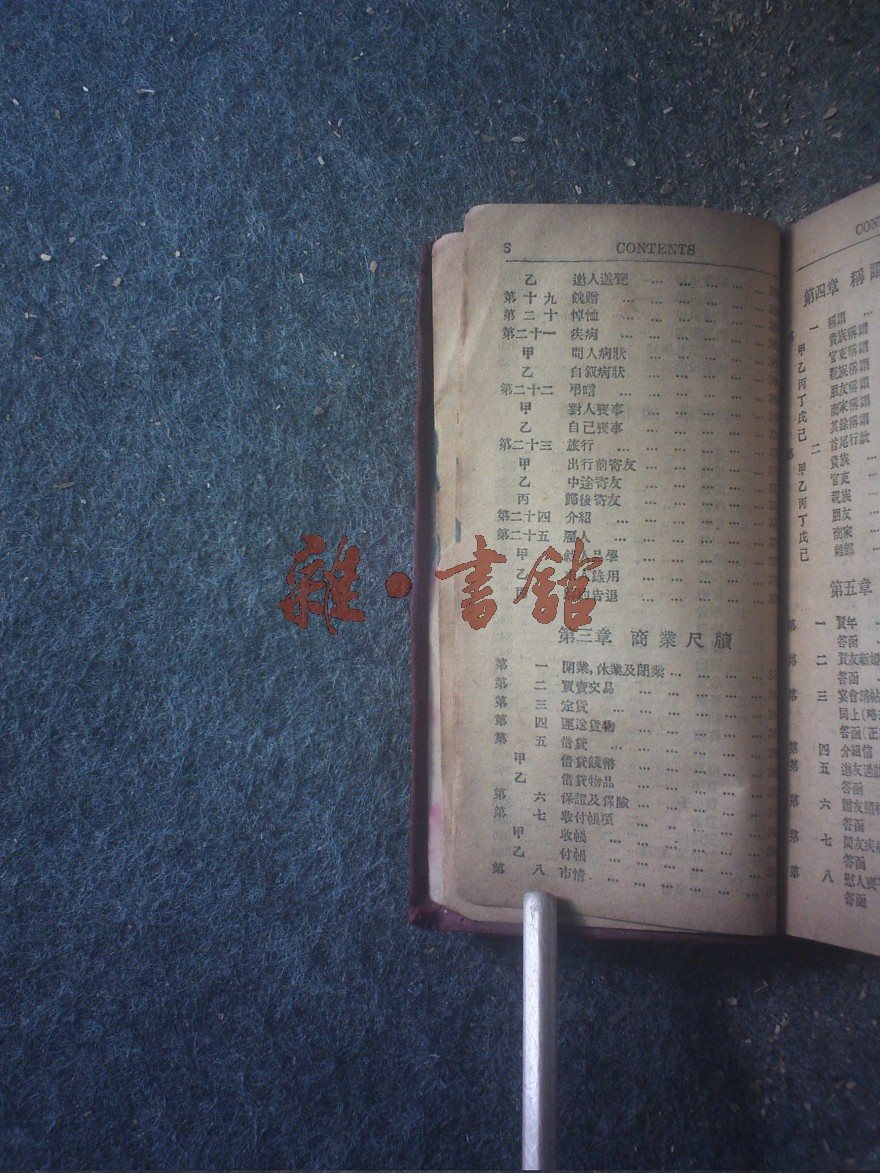 S CONTENTS
乙 邀人遊覽 ... ... ... ... ...
第十九 餽贈 ... ... ... ... ... ...
第二十 悼恤 ... ... ... ... ... ...
第二十一 疾病 ... ... ... ... ... ...
甲 問人病狀 ... ... ... ... ...
乙 自叙病狀 ... ... ... ... ...
第二十二 弔唁 ... ... ... ... ... ...
甲 對人喪事 ... ... ... ... ...
乙 自己喪事 ... ... ... ... ...
第二十三 旅行 ... ... ... ... ... ...
甲 出行前寄友 ... ... ... ... ...
乙 中途寄友 ... ... ... ... ...
丙 歸後寄友 ... ... ... ... ...
第二十四 介紹 ... ... ... ... ... ...
第二十五 人 ... ... ... ... ... ...
甲 品學 ... ... ... ... ...
乙 錄用 ... ... ... ... ...
告退 ... ... ... ... ...
雜·書舘
第三章 商業尺牘
第一 開業,休業及閉業 ... ... ... ...
第二 買賣交易 ... ... ... ... ...
第三 定貨 ... ... ... ... ... ...
第四 運送貨物 ... ... ... ... ...
第五 借貸 ... ... ... ... ... ...
甲 借貸錢幣 ... ... ... ... ...
乙 借貸物品 ... ... ... ... ...
第六 保證及保險 ... ... ... ... ...
第七 收付帳項 ... ... ... ... ...
甲 收帳 ... ... ... ... ...
乙 付帳 ... ... ... ... ...
第八 市情 ... ... ... ... ... ...
CON
第四章 稱謂
一 稱謂 ...
甲 貴族稱謂
乙 官吏稱謂
丙 親族稱謂
丁 朋友稱謂
戊 商家稱謂
己 其餘稱謂
二 首尾行欵
甲 貴族 ...
乙 官吏 ...
丙 親族 ...
丁 朋友 ...
戊 商家 ...
己
第五章
第一 賀年
答函 ...
第二 賀友新
答函 ...
第三 宴會請帖
同上(略
答函(正
第四 介紹信
第五 邀友
答函
第六 贈友
答函
第七 問友疾
答函
第八 慰人喪
答函